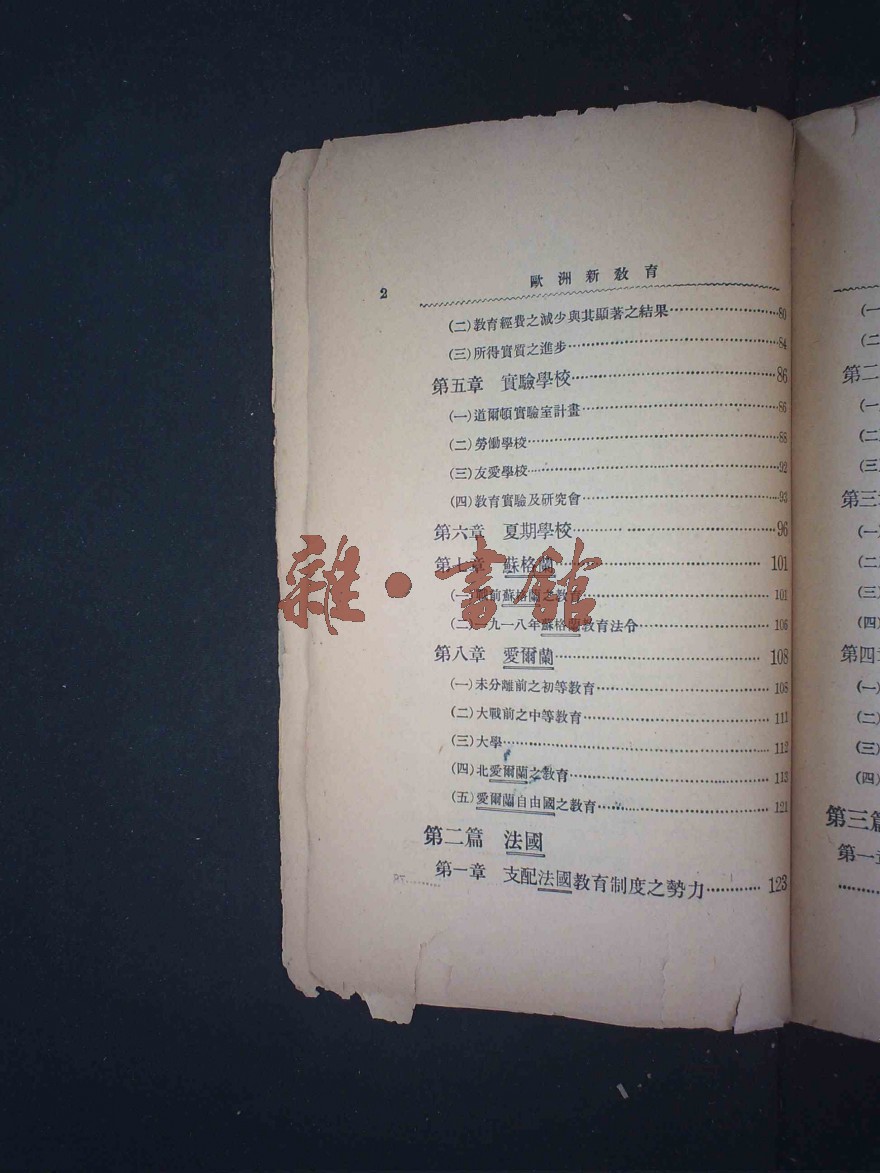 2
歐洲新教育
(二)教育經費之減少與其顯著之結果……80
(三)所得實質之進步……84
第五章 實驗學校……86
(一)道爾頓實驗室計畫……86
(二)勞働學校……88
(三)友愛學校……92
(四)教育實驗及研究會……93
第六章 夏期學校……96
第七章 蘇格蘭……101
(一)戰前蘇格蘭之教育……101
(二)一九一八年蘇格蘭教育法令……106
第八章 愛爾蘭……108
(一)未分離前之初等教育……108
(二)大戰前之中等教育……111
(三)大學……112
(四)北愛爾蘭之教育……113
(五)愛爾蘭自由國之教育……121
第二篇 法國
第一章 支配法國教育制度之勢力……123
雜·書館
(一
(二
第二
(一
(二
(三
第三
(一
(二
(三
(四
第四
(一
(二
(三
(四
第三篇
第一